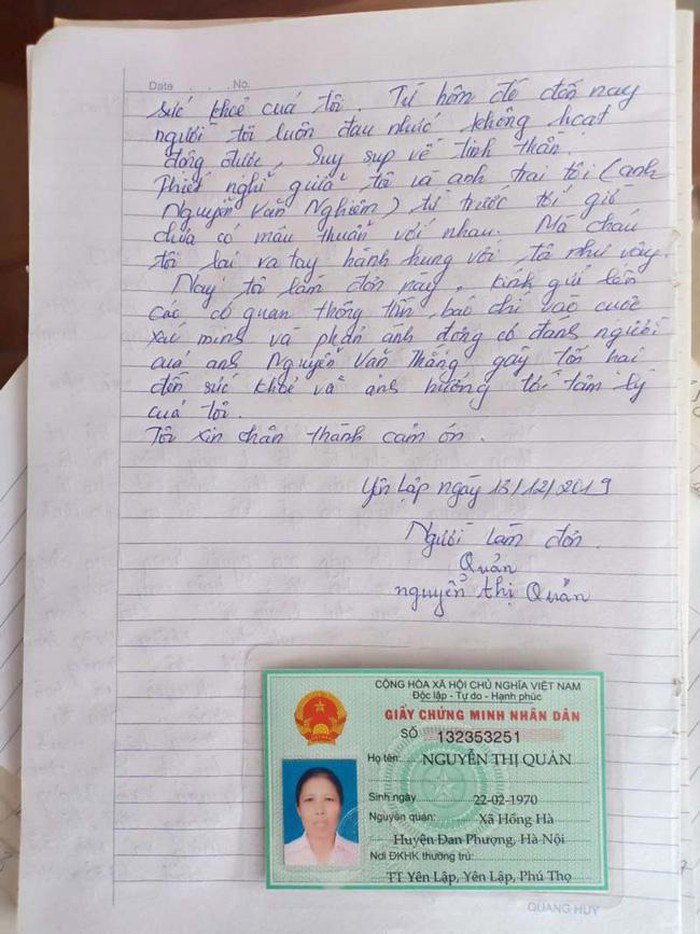 Date . . . . . No.
sức khoẻ cuả tôi. Từ hôm đó đến nay
người tôi luôn đau nhức không hoạt
động được, suy sụp về tinh thần.
Thiết nghĩ giữa tôi và anh trai tôi (anh
Nguyễn Văn Nghiêm) từ trước tới giờ
chưa có mâu thuẫn với nhau. Mà cháu
tôi lại ra tay hành hung với tôi như vậy.
Nay tôi làm đơn này, kính gửi lên
các cơ quan thông tấn, báo chí vào cuộc
xác minh và phản ánh động cơ đánh người
cuả anh Nguyễn Văn Thắng gây tổn hại
đến sức khoẻ và ảnh hưởng tới tâm lý
cuả tôi.
Tôi xin chân thành cảm ơn.
Yên Lập ngày 13/12/2019
Người làm đơn.
Quản
nguyễn thị Quản
CỘNG HÒA XÃ HỘI CHỦ NGHĨA VIỆT NAM
Độc lập - Tự do - Hạnh phúc
GIẤY CHỨNG MINH NHÂN DÂN
SỐ 132353251
Họ tên: NGUYỄN THỊ QUẢN
Sinh ngày 22-02-1970
Nguyên quán: Xã Hồng Hà
Huyện Đan Phượng, Hà Nội
Nơi ĐKHK thường trú:
TT Yên Lập, Yên Lập, Phú Thọ
QUANG HUY